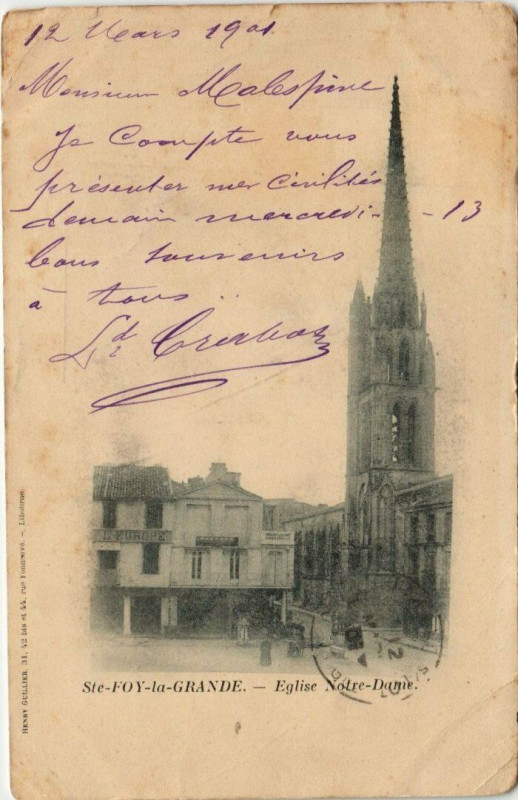 12 Mars 1901
Monsieur Malespine
Je Compte vous
présenter mes Civilités
demain mercredi - 13
bons souvenirs
à tous
L'EUROPE
Ste-FOY-la-GRANDE. — Eglise Notre-Dame.
HENRY GUILLIER, 31, 42 bis et 44, rue Fonneuve. — Libourne
12